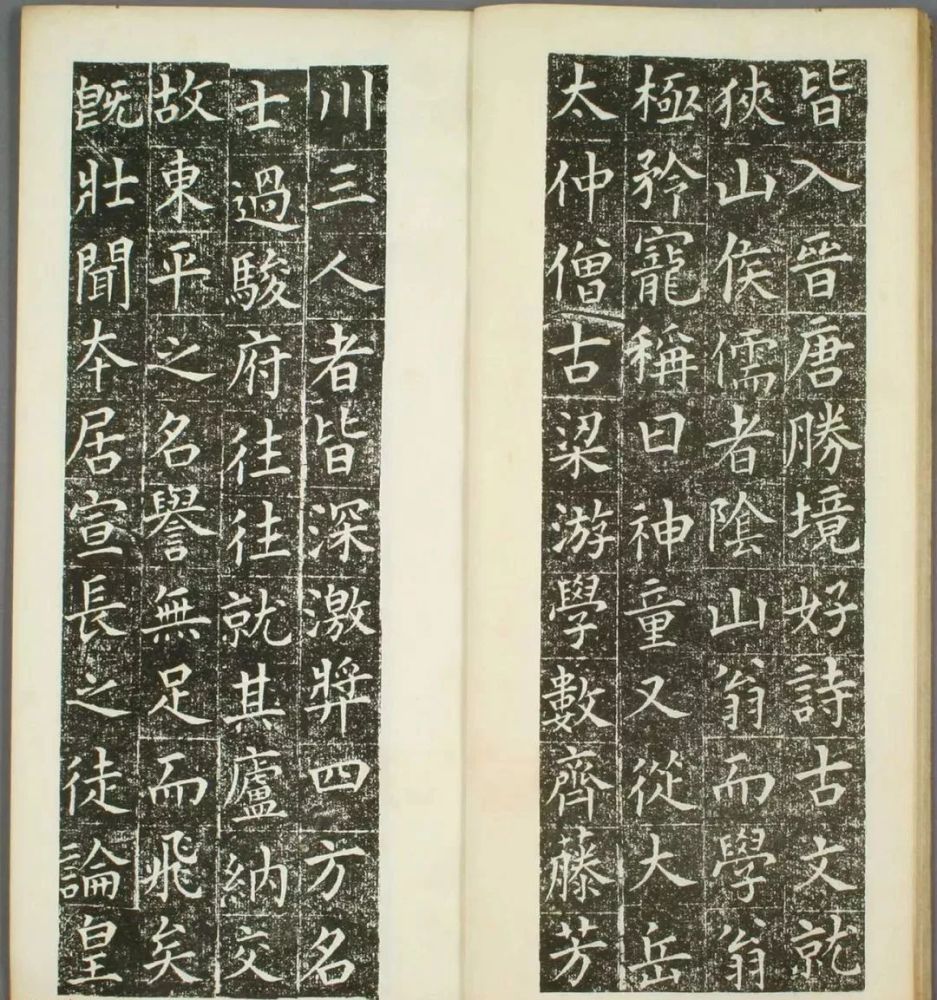 皆入晉唐勝境好詩古文就
狹山侯儒者陰山翁而學翁
極矜寵稱曰神童又從大岳
太仲僧古梁游學數齊藤芳
川三人者皆深激弉四方名
士過駿府往往就其廬納交
故東平之名譽無足而飛矣
既壯聞本居宣長之徒論皇